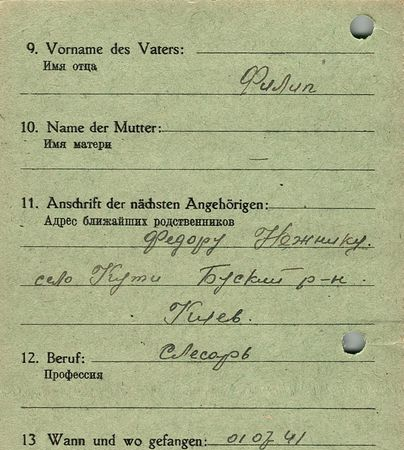 9. Vorname des Vaters:
Имя отца
Филип
10. Name der Mutter:
Имя матери
—
11. Anschrift der nächsten Angehörigen:
Адрес ближайших родственников
Федору Нежнику.
село Кути Буский р-н.
Киев.
12. Beruf: Слесарь
Профессия
13 Wann und wo gefangen: 01 07 41